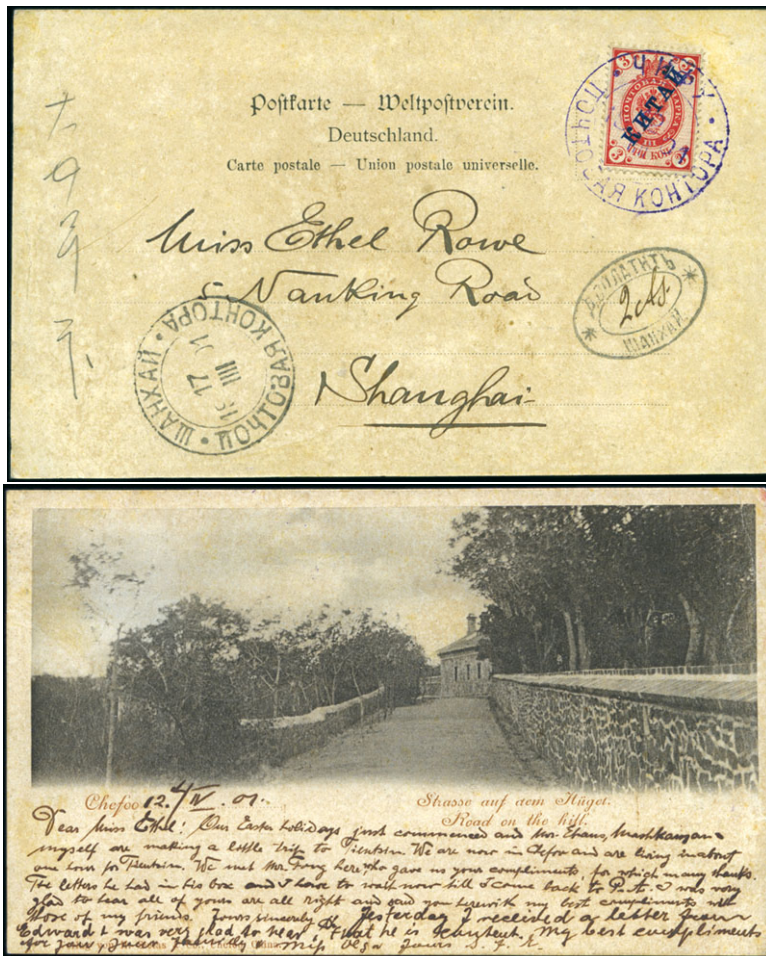 3 3
ПОЧТОВАЯ МАРКА
3 3
КИТАЙ
ЧИФУ • ПОЧТОВАЯ КОНТОРА •
Postkarte — Weltpostverein.
Deutschland.
Carte postale — Union postale universelle.
Miss Ethel Rowe
5 Nanking Road
Shanghai
ДОПЛАТИТЬ
2
ШАНХАЙ
ШАНХАЙ • ПОЧТОВАЯ КОНТОРА •
17
01
Chefoo 12. 4/IV. 01.
Strasse auf dem Hügel.
Road on the hill.
Dear Miss Ethel! Our Easter holidays just commenced and Mr. and
myself are making a little trip to Tientsin. We are now in Chefoo and are living in about
one hour for Tientsin. We met Mr. Fong here who gave us your compliments, for which many thanks.
The letters he had in his box and I have to wait now till I come back to P.A. I was very
glad to hear all of yours are all right and send you herewith my best compliments with
those of my friends. Yours sincerely Yesterday I received a letter from
Edward & was very glad to hear that he is My best compliments
for your family yours